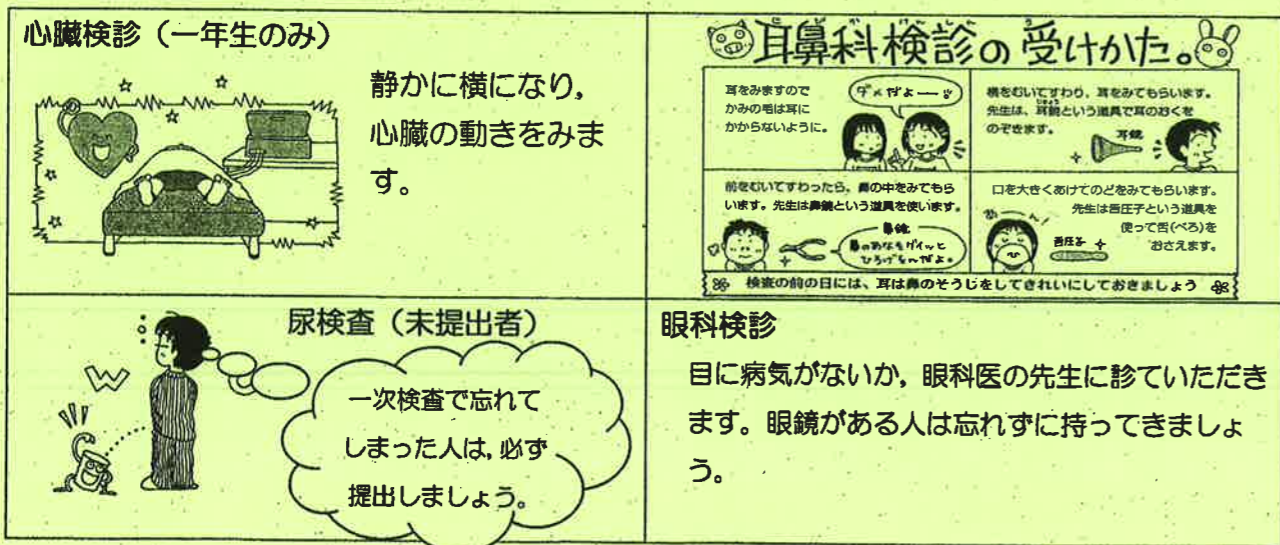 心臓検診（一年生のみ）
静かに横になり，
心臓の動きをみま
す。
耳鼻科検診の受けかた。
耳をみますので
かみの毛は耳に
かからないように。
ダメだよー
横をむいてすわり，耳をみてもらいます。
先生は，耳鏡という道具で耳のおくを
のぞきます。
耳鏡
前をむいてすわったら，鼻の中をみてもら
います。先生は鼻鏡という道具を使います。
鼻鏡
鼻のあなをグイッと
ひろげるんだよ。
口を大きくあけてのどをみてもらいます。
先生は舌圧子という道具を
使って舌(べろ)を
おさえます。
あーん！
舌圧子
検査の前の日には、耳は鼻のそうじをしてきれいにしておきましょう
尿検査（未提出者）
一次検査で忘れて
しまった人は，必ず
提出しましょう。
眼科検診
目に病気がないか，眼科医の先生に診ていただき
ます。眼鏡がある人は忘れずに持ってきましょ
う。